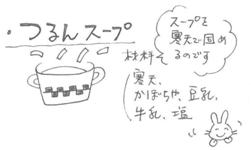 ・つるんスープ
スープを
寒天で固め
るのです
材料
寒天、
かぼちゃ、豆乳、
牛乳、塩